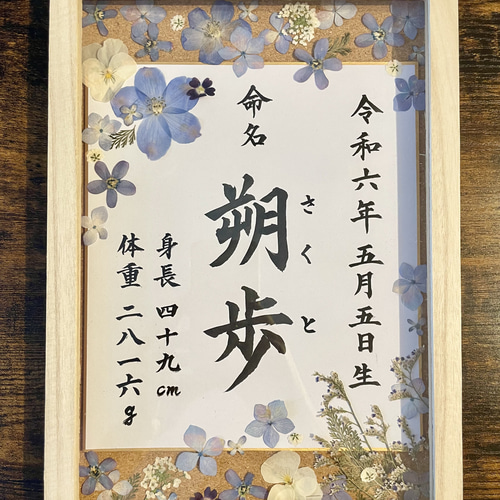 令和六年五月五日生
命名
朔歩
さくと
身長四十九cm
体重二八一六g